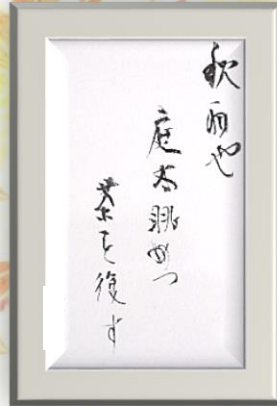 秋雨や
庭木眺めつ
茶を復す